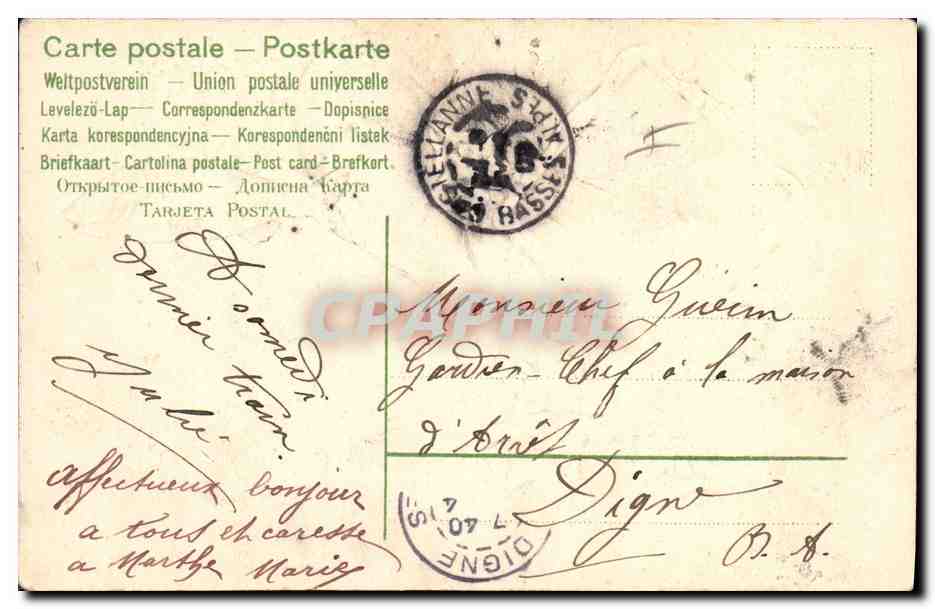 Carte postale — Postkarte
Weltpostverein — Union postale universelle
Levelező-Lap — Correspondenzkarte — Dopisnice
Karta korespondencyjna — Korespondenční listek
Briefkaart — Cartolina postale — Post card — Brefkort.
Открытое письмо — Дописна Карта
TARJETA POSTAL
BASSES ALPES
CPAPHIL
A samedi
dernier train.
Monsieur Guérin
Gardien-Chef à la maison
d'Arrêt
Digne
B. A.
Affectueux bonjour
a tous et caresse
a Marthe Marie
DIGNE
7 40